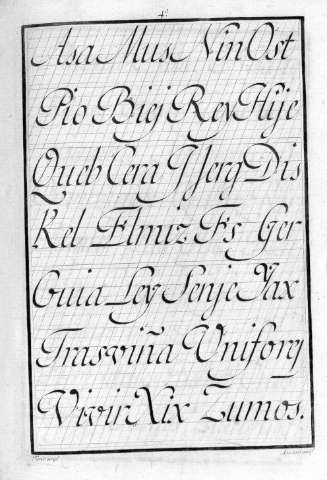 4.
Asa Mus Nin Ost
Pio Biej Rey Hije
Queb Cera J Jerg Dis
Kel Elmiz Fs Ger
Guia Ley Senje Yax
Trasviña Uniforj
Vivir Xix Zumos.